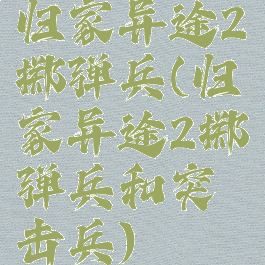 归家异途2
掷弹兵(归
家异途2掷
弹兵和突
击兵)